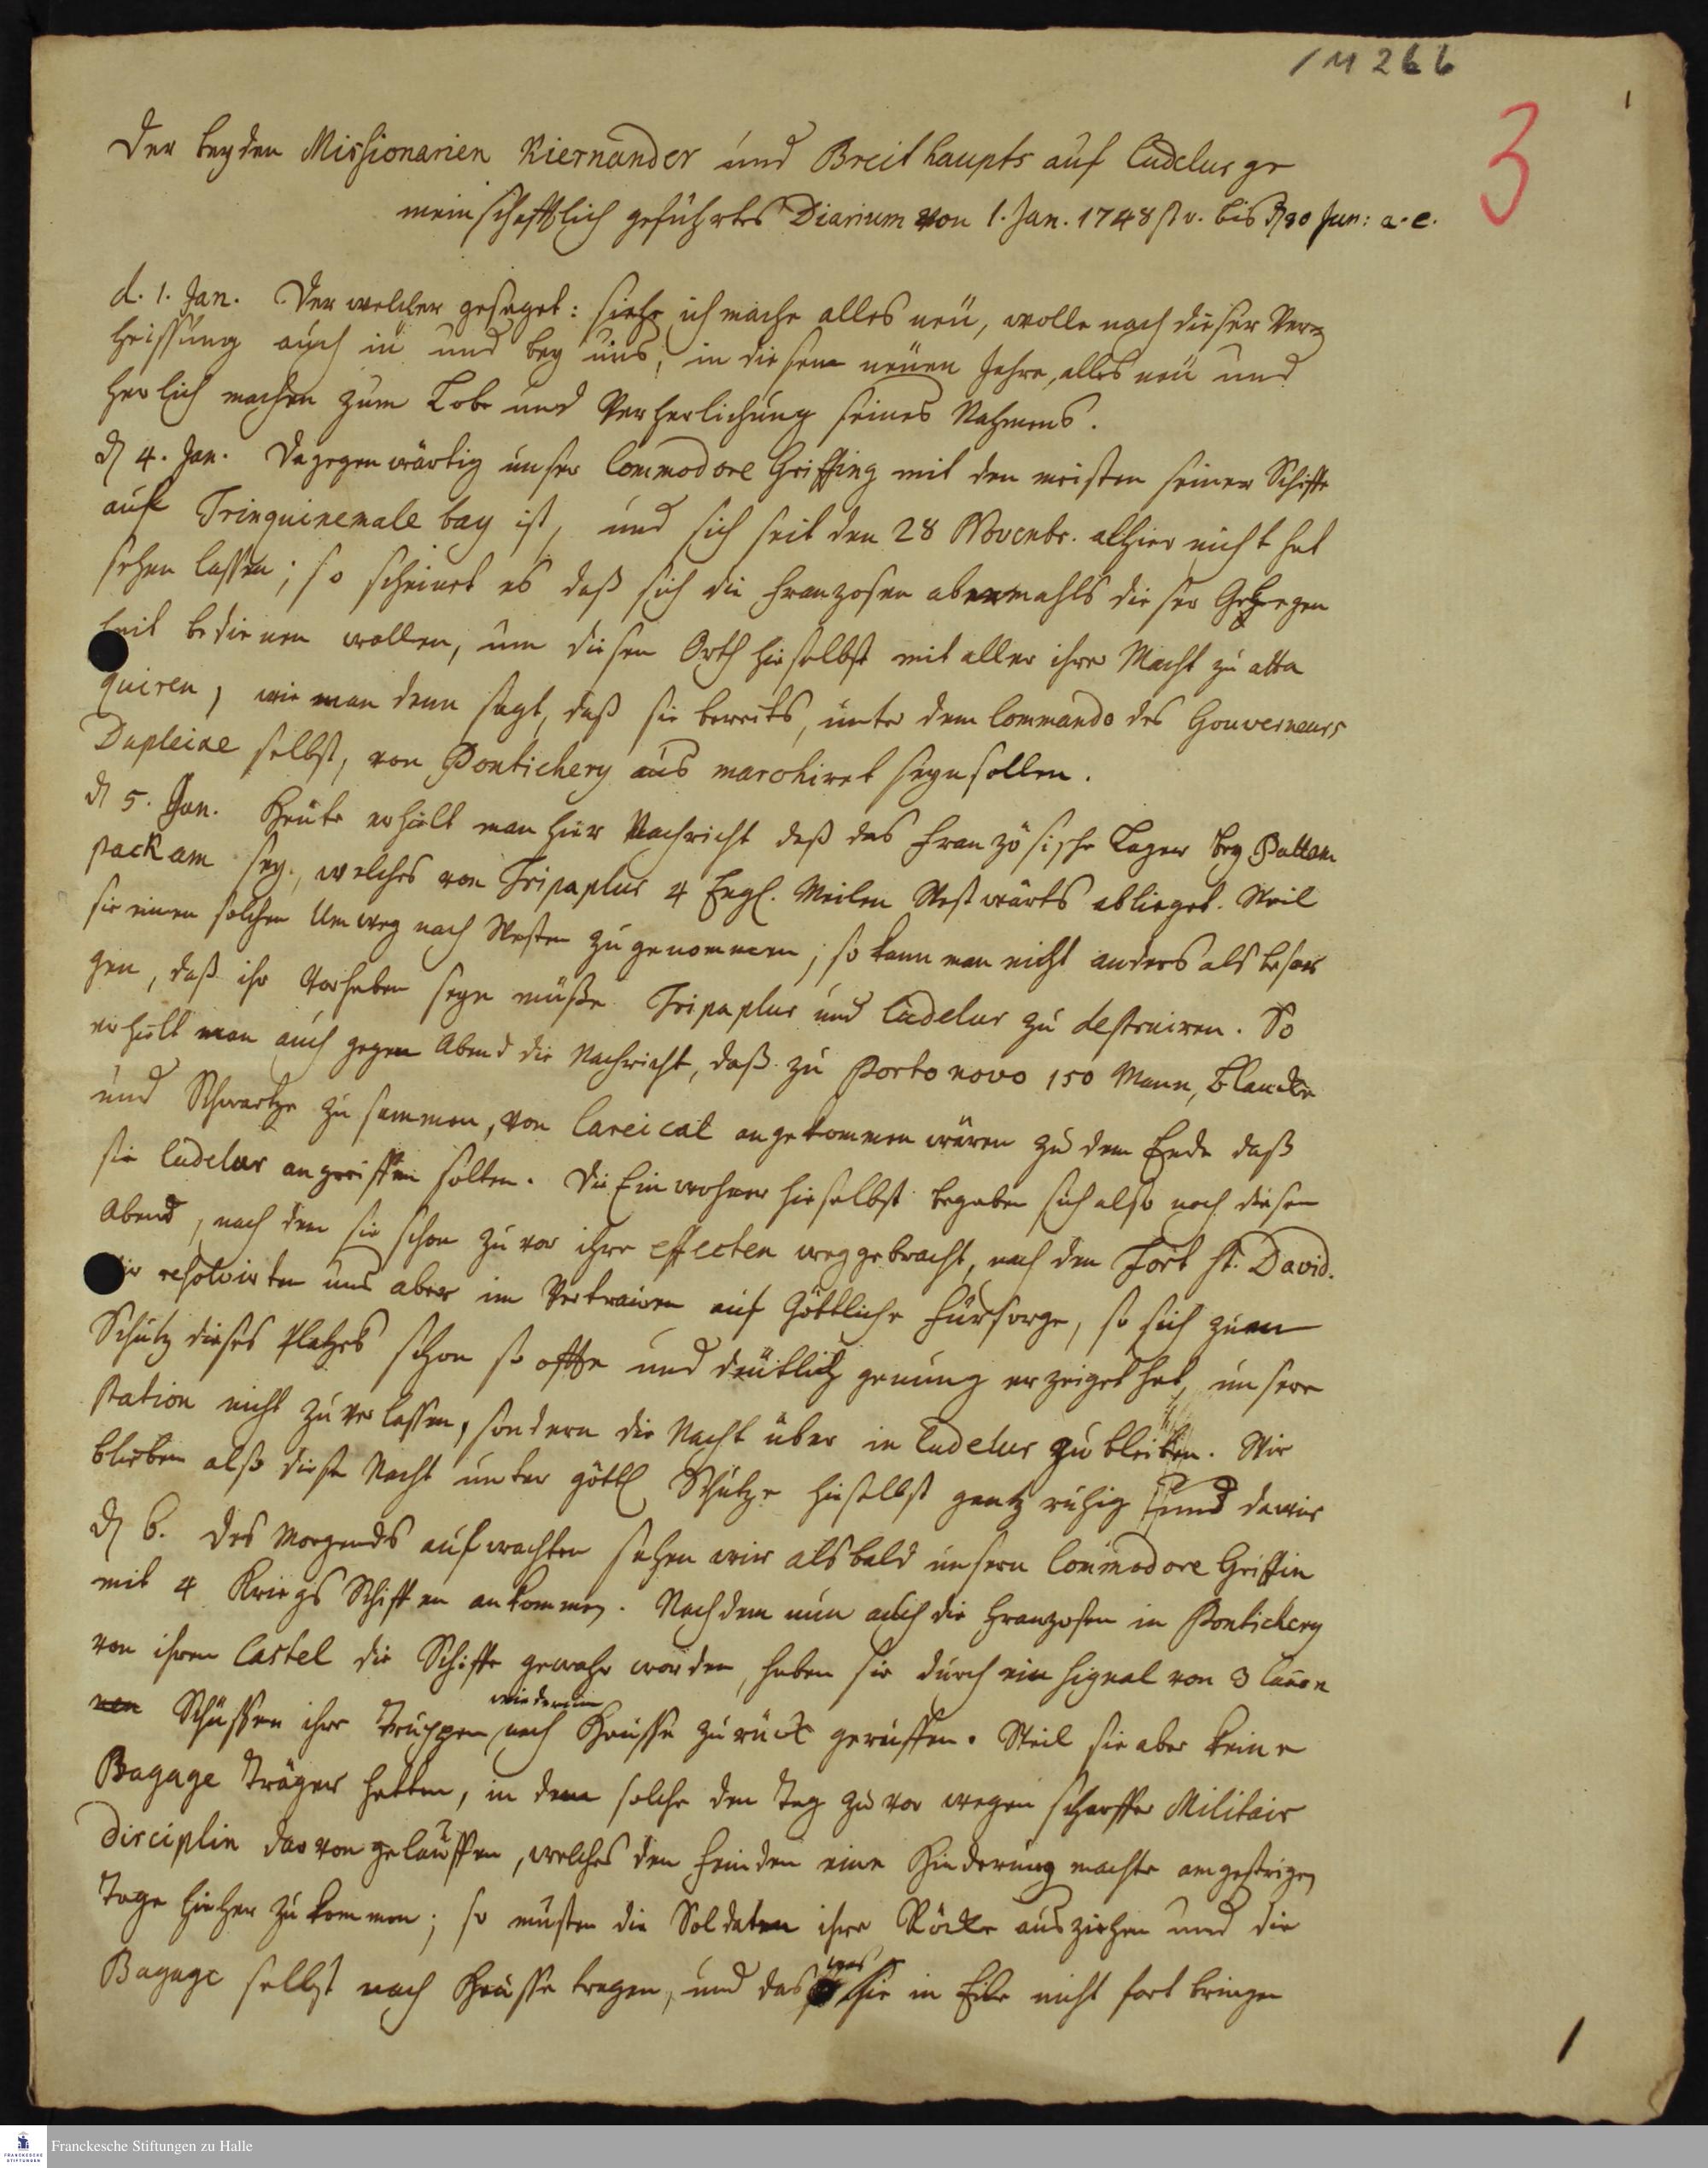 1 M 2 6 6
3
1
Der beyden Missionarien Kiernander und Breithaupts auf Cudelur ge
meinschafftlich geführtes Diarium von 1. Jan. 1748 st v. bis d 30 Jun: a. c.
d. 1. Jan. Der welcher gesaget: siehe ich mache alles neü, wolle nach dieser Ver=
heissung auch in und bey uns, in diesem neüen Jahre, alles neü und
herlich machen zum Lobe und Verherlichung seines Nahmens.
d 4. Jan. Da gegenwärtig unser Commodore Griffing mit den meisten seiner Schiffe
auf Trinquinemale bay ist, und sich seit den 28 Novembr. alhier nicht hat
sehen lassen; so scheinet es daß sich die Franzosen abermahls dieser Gelegen
heit bedienen wollen, um diesen Orth hieselbst mit aller ihrer Macht zu atta
quiren, wie man denn sagt, daß sie bereits, unter dem Commando des Gouverneurs
Dupleixe selbst, von Pontichery aus marchiret seyn sollen.
d 5. Jan. Heüte erhielt man hier Nachricht daß das Französische Lager bey Pattam
packam sey, welches von Tripaplur 4 Engl. Meilen Westwärts ablieget. Weil
sie einen solchen Umweg nach Westen zu genommen; so kann man nicht anders als besor
gen, daß ihr Vorhaben seyn müße Tripaplur und Cudelur zu destruiren. So
erhielt man auch gegen Abend die Nachricht, daß zu Porto novo 150 Mann, Blancke
und Schwartze zusammen, von Careical angekommen wären zu dem Ende daß
sie Cudelur angreiffen solten. Die Einwohner hieselbst begaben sich also noch diesen
Abend, nach dem sie schon zuvor ihre effecten weggebracht, nach den Fort St. David.
Wir resolvirten uns aber im Vertrauen auf Göttliche Fürsorge, so sich zum
Schutz dieses Platzes schon so offte und deütlich genung erzeiget hat, unsere
Station nicht zu verlassen, sondern die Nacht über in Cudelur zu bleiben. Wir
blieben also diese Nacht unter göttl Schutze hieselbst gantz ruhig und da wir
d 6. des Morgends aufwachten sahen wir alsbald unsern Commodore Griffin
mit 4 Kriegs Schiffen ankommen. Nachdem nun auch die Franzosen in Pontichery
von ihrem Castel die Schiffe gewahr worden, haben sie durch ein Signal von 3 Canon
nen Schüssen ihre Truppen wiederum nach Hausse zurück geruffen. Weil sie aber keine
Bagage Träger hatten, in dem solche den Tag zuvor wegen scharffer Militair
Disciplin davon gelauffen, welches den Feinden eine Hinderung machte am gestrigen
Tage hieher zu kommen; so musten die Soldaten ihre Röcke ausziehen und die
Bagage selbst nach Hausse tragen, und das was sie in Eile nicht fort bringen
1
Franckesche Stiftungen zu Halle
FRANCKESCHE
STIFTUNGEN